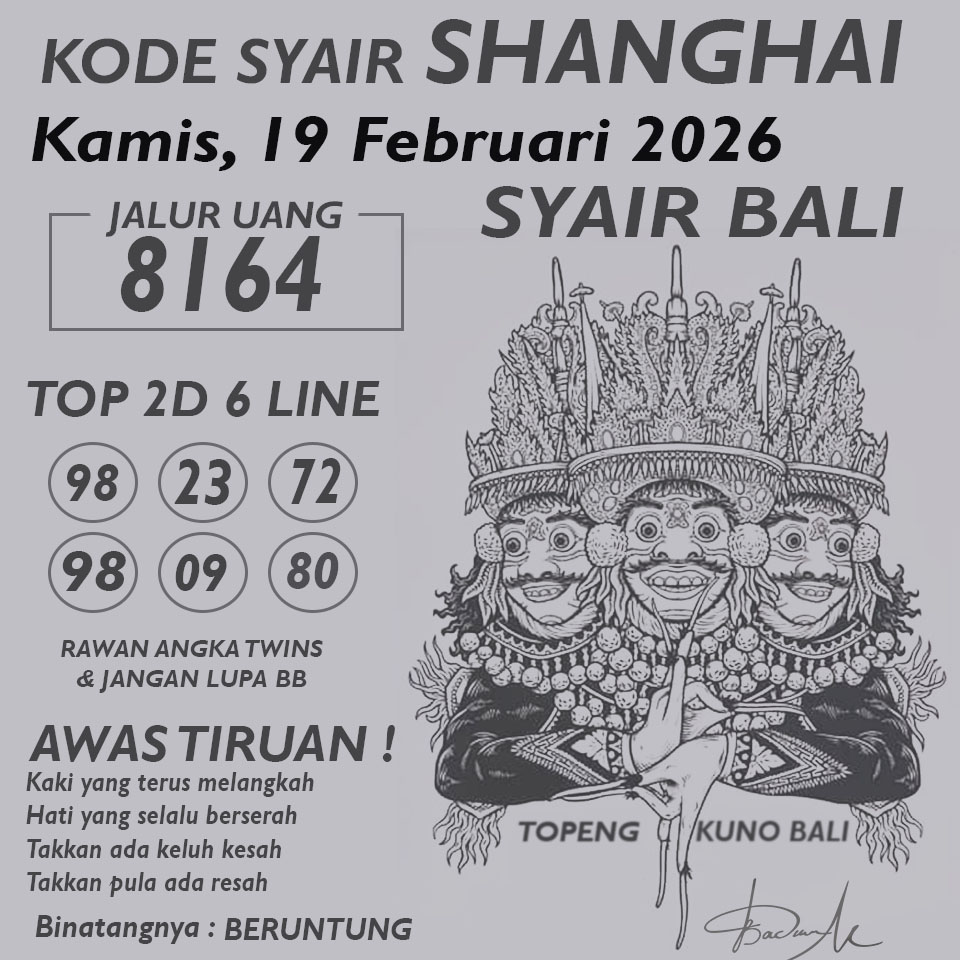 KODE SYAIR SHANGHAI
Kamis, 19 Februari 2026
SYAIR BALI
JALUR UANG
8164
TOP 2D 6 LINE
98 23 72
98 09 80
RAWAN ANGKA TWINS
& JANGAN LUPA BB
AWAS TIRUAN !
Kaki yang terus melangkah
Hati yang selalu berserah
Takkan ada keluh kesah
Takkan pula ada resah
Binatangnya : BERUNTUNG
TOPENG KUNO BALI